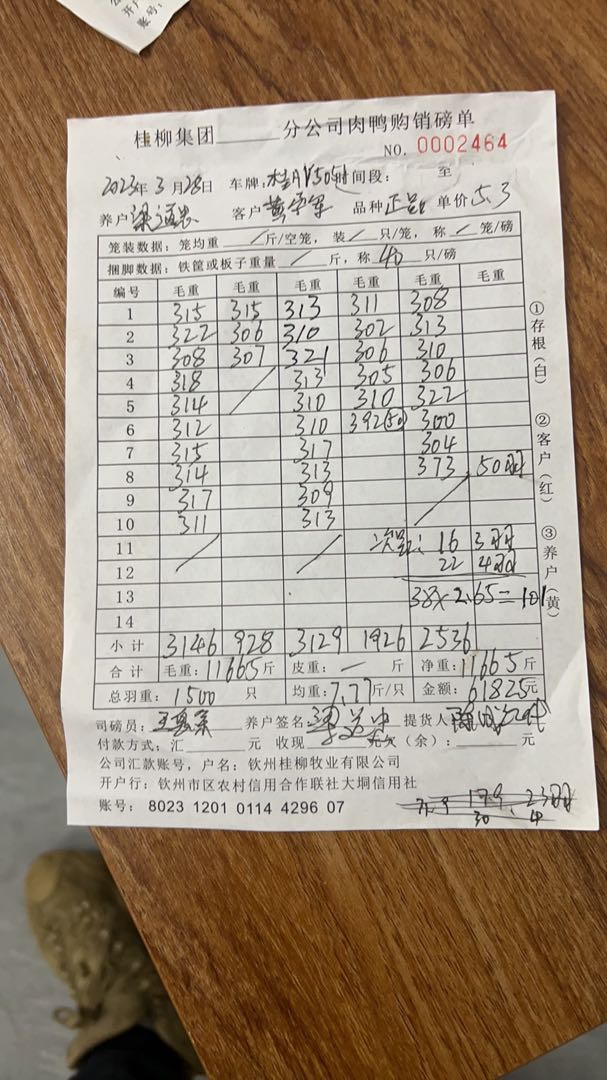 桂柳集团______分公司肉鸭购销磅单
NO. 0002464
2023年3月28日 车牌: 桂A 时间段: 至
养户 客户 品种 正 单价 5.3
笼装数据: 笼均重 / 斤/空笼, 装 / 只/笼, 称 / 笼/磅
捆脚数据: 铁筐或板子重量 / 斤, 称 40 只/磅
编号 毛重 毛重 毛重 毛重 毛重 毛重
1 315 315 313 311 308
2 322 306 310 302 313
3 308 307 321 306 310
4 318 / 313 305 306
5 314 310 310 322
6 312 310 392(50) 300
7 315 317 304
8 314 313 373 50羽
9 317 309 /
10 311 313
11 / / 次品: 16 3羽
12 22 4羽
13 38×2.65=101
14
小计 3146 928 3129 1926 2536
合计 毛重: 11665斤 皮重: / 斤 净重: 11665斤
总羽重: 1500 只 均重: 7.77斤/只 金额: 61825元
司磅员: 养户签名 提货人
付款方式: 汇______元 收现______元欠(余): ______元
公司汇款账号, 户名: 钦州桂柳牧业有限公司
开户行: 钦州市区农村信用合作联社大垌信用社
账号: 8023 1201 0114 4296 07
17.9 23羽
30 4
①存根(白) ②客户(红) ③养户(黄)
开户
账号: